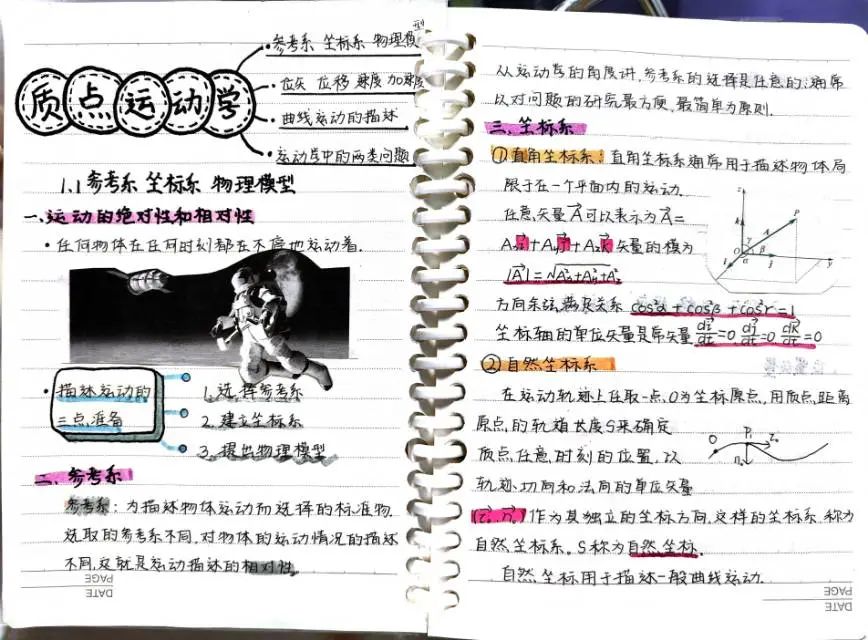 质点运动学
参考系 坐标系 物理模型
位矢 位移 速度 加速度
曲线运动的描述
运动学中的两类问题
1.1 参考系 坐标系 物理模型
一.运动的绝对性和相对性
·任何物体在任何时刻都在不停地运动着.
·描述运动的
三点准备
1.选择参考系
2.建立坐标系
3.提出物理模型
二.参考系
参考系:为描述物体运动而选择的标准物
选取的参考系不同,对物体的运动情况的描述
不同,这就是运动描述的相对性.
DATE
PAGE
从运动学的角度讲,参考系的选择是任意的;通常
以对问题的研究最方便,最简单为原则.
三.坐标系
①直角坐标系:直角坐标系通常用于描述物体局
限于在一个平面内的运动.
任意矢量A⃗可以表示为A⃗=
Aₓi⃗+Aᵧj⃗+A_zk⃗ 矢量的模为
|A⃗|=√(Aₓ²+Aᵧ²+A_z²)
方向余弦满足关系 cos²α+cos²β+cos²γ=1
坐标轴的单位矢量是常矢量 di⃗/dt=0 dj⃗/dt=0 dk⃗/dt=0
z
P
A
k
γ
O
α
β
i
j
y
②自然坐标系
在运动轨迹上任取一点,O为坐标原点,用质点,距离
原点,的轨道长度S来确定
质点,任意时刻的位置.以
轨迹切向和法向的单位矢量
(τ⃗₀,n⃗₀)作为其独立的坐标方向,这样的坐标系,称为
自然坐标系。S称为自然坐标.
O
P₁
τ₀
n₀
自然坐标用于描述一般曲线运动.
DATE
PAGE